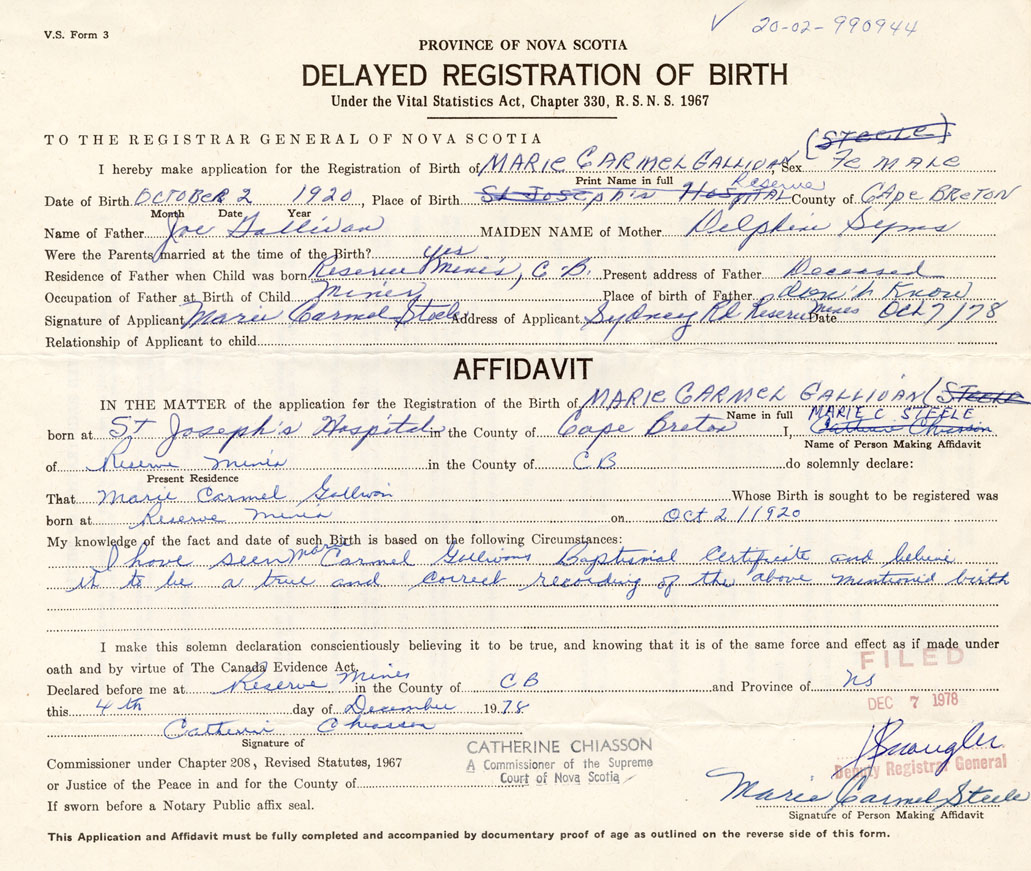 V.S. Form 3
✓ 20-02-990944
PROVINCE OF NOVA SCOTIA
DELAYED REGISTRATION OF BIRTH
Under the Vital Statistics Act, Chapter 330, R.S.N.S. 1967
TO THE REGISTRAR GENERAL OF NOVA SCOTIA
(STEELE)
I hereby make application for the Registration of Birth of MARIE CARMEL GALLIVAN Sex FEMALE
Print Name in full
Reserve
Date of Birth OCTOBER 2 1920, Place of Birth St Joseph's Hospital County of CAPE BRETON
Month Date Year
Name of Father Joe Gallivan MAIDEN NAME of Mother Delphine Syms
Were the Parents married at the time of the Birth? yes
Residence of Father when Child was born Reserve Mines, C.B. Present address of Father Deceased
Occupation of Father at Birth of Child Miner Place of birth of Father don't know
Signature of Applicant Marie Carmel Steele Address of Applicant Sydney Rd Reserve Mines Date Oct 7/78
Relationship of Applicant to child
AFFIDAVIT
IN THE MATTER of the application for the Registration of the Birth of MARIE CARMEL GALLIVAN (STEELE
Name in full MARIE C STEELE
born at St Joseph's Hospital in the County of Cape Breton I, Catherine Chiasson
Name of Person Making Affidavit
of Reserve Mines in the County of CB do solemnly declare:
Present Residence
That Marie Carmel Gallivan Whose Birth is sought to be registered was
born at Reserve Mines on Oct 2/1920
My knowledge of the fact and date of such Birth is based on the following Circumstances:
I have seen Carmel Gallivans Baptismal Certificate and believe
it to be a true and correct recording of the above mentioned birth
I make this solemn declaration conscientiously believing it to be true, and knowing that it is of the same force and effect as if made under
oath and by virtue of The Canada Evidence Act.
FILED
Declared before me at Reserve Mines in the County of CB and Province of NS
this 4th day of December 1978
DEC 7 1978
Catherine Chiasson
Signature of
CATHERINE CHIASSON
A Commissioner of the Supreme
Court of Nova Scotia
Commissioner under Chapter 208, Revised Statutes, 1967
Deputy Registrar General
or Justice of the Peace in and for the County of
Marie Carmel Steele
If sworn before a Notary Public affix seal.
Signature of Person Making Affidavit
This Application and Affidavit must be fully completed and accompanied by documentary proof of age as outlined on the reverse side of this form.